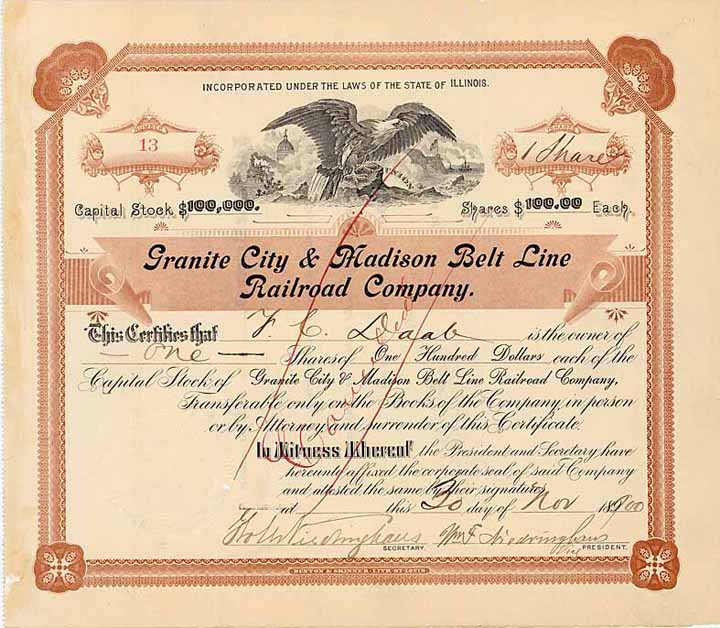 INCORPORATED UNDER THE LAWS OF THE STATE OF ILLINOIS.
NUMBER
13
SHARES
1 Share
UNION
Capital Stock $100,000.
Shares $100.00 Each.
Granite City & Madison Belt Line
Railroad Company.
This Certifies that F. C. Daab is the owner of
— One — Shares of One Hundred Dollars each of the
Capital Stock of Granite City & Madison Belt Line Railroad Company,
Transferable only on the Books of the Company in person
or by Attorney and surrender of this Certificate.
Cancelled
In Witness Whereof the President and Secretary have
hereunto affixed the corporate seal of said Company
and attested the same by their signatures
at this 30 day of Nov 1900
Niedringhaus
SECRETARY.
Wm F. Niedringhaus
PRESIDENT.
BUXTON & SKINNER - LITH ST. LOUIS